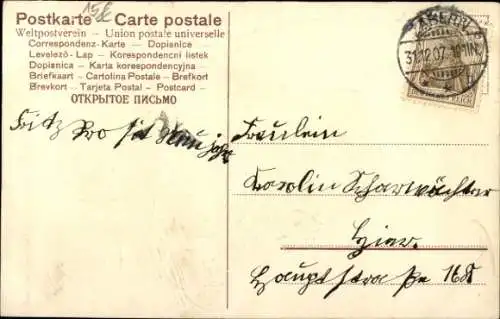 15£
Postkarte — Carte postale
Weltpostverein — Union postale universelle
Correspondenz-Karte — Dopisnice
Levelező-Lap — Korespondencni listek
Dopisnica — Karta korespondencyjna
Briefkaart — Cartolina Postale — Brefkort
Brevkort — Tarjeta Postal — Postcard —
ОТКРЫТОЕ ПИСЬМО
31.12.07.
Fritz Prosit Neujahr
Fräulein
Karolin Scharwächter
Hier.
Hauptstraße 168